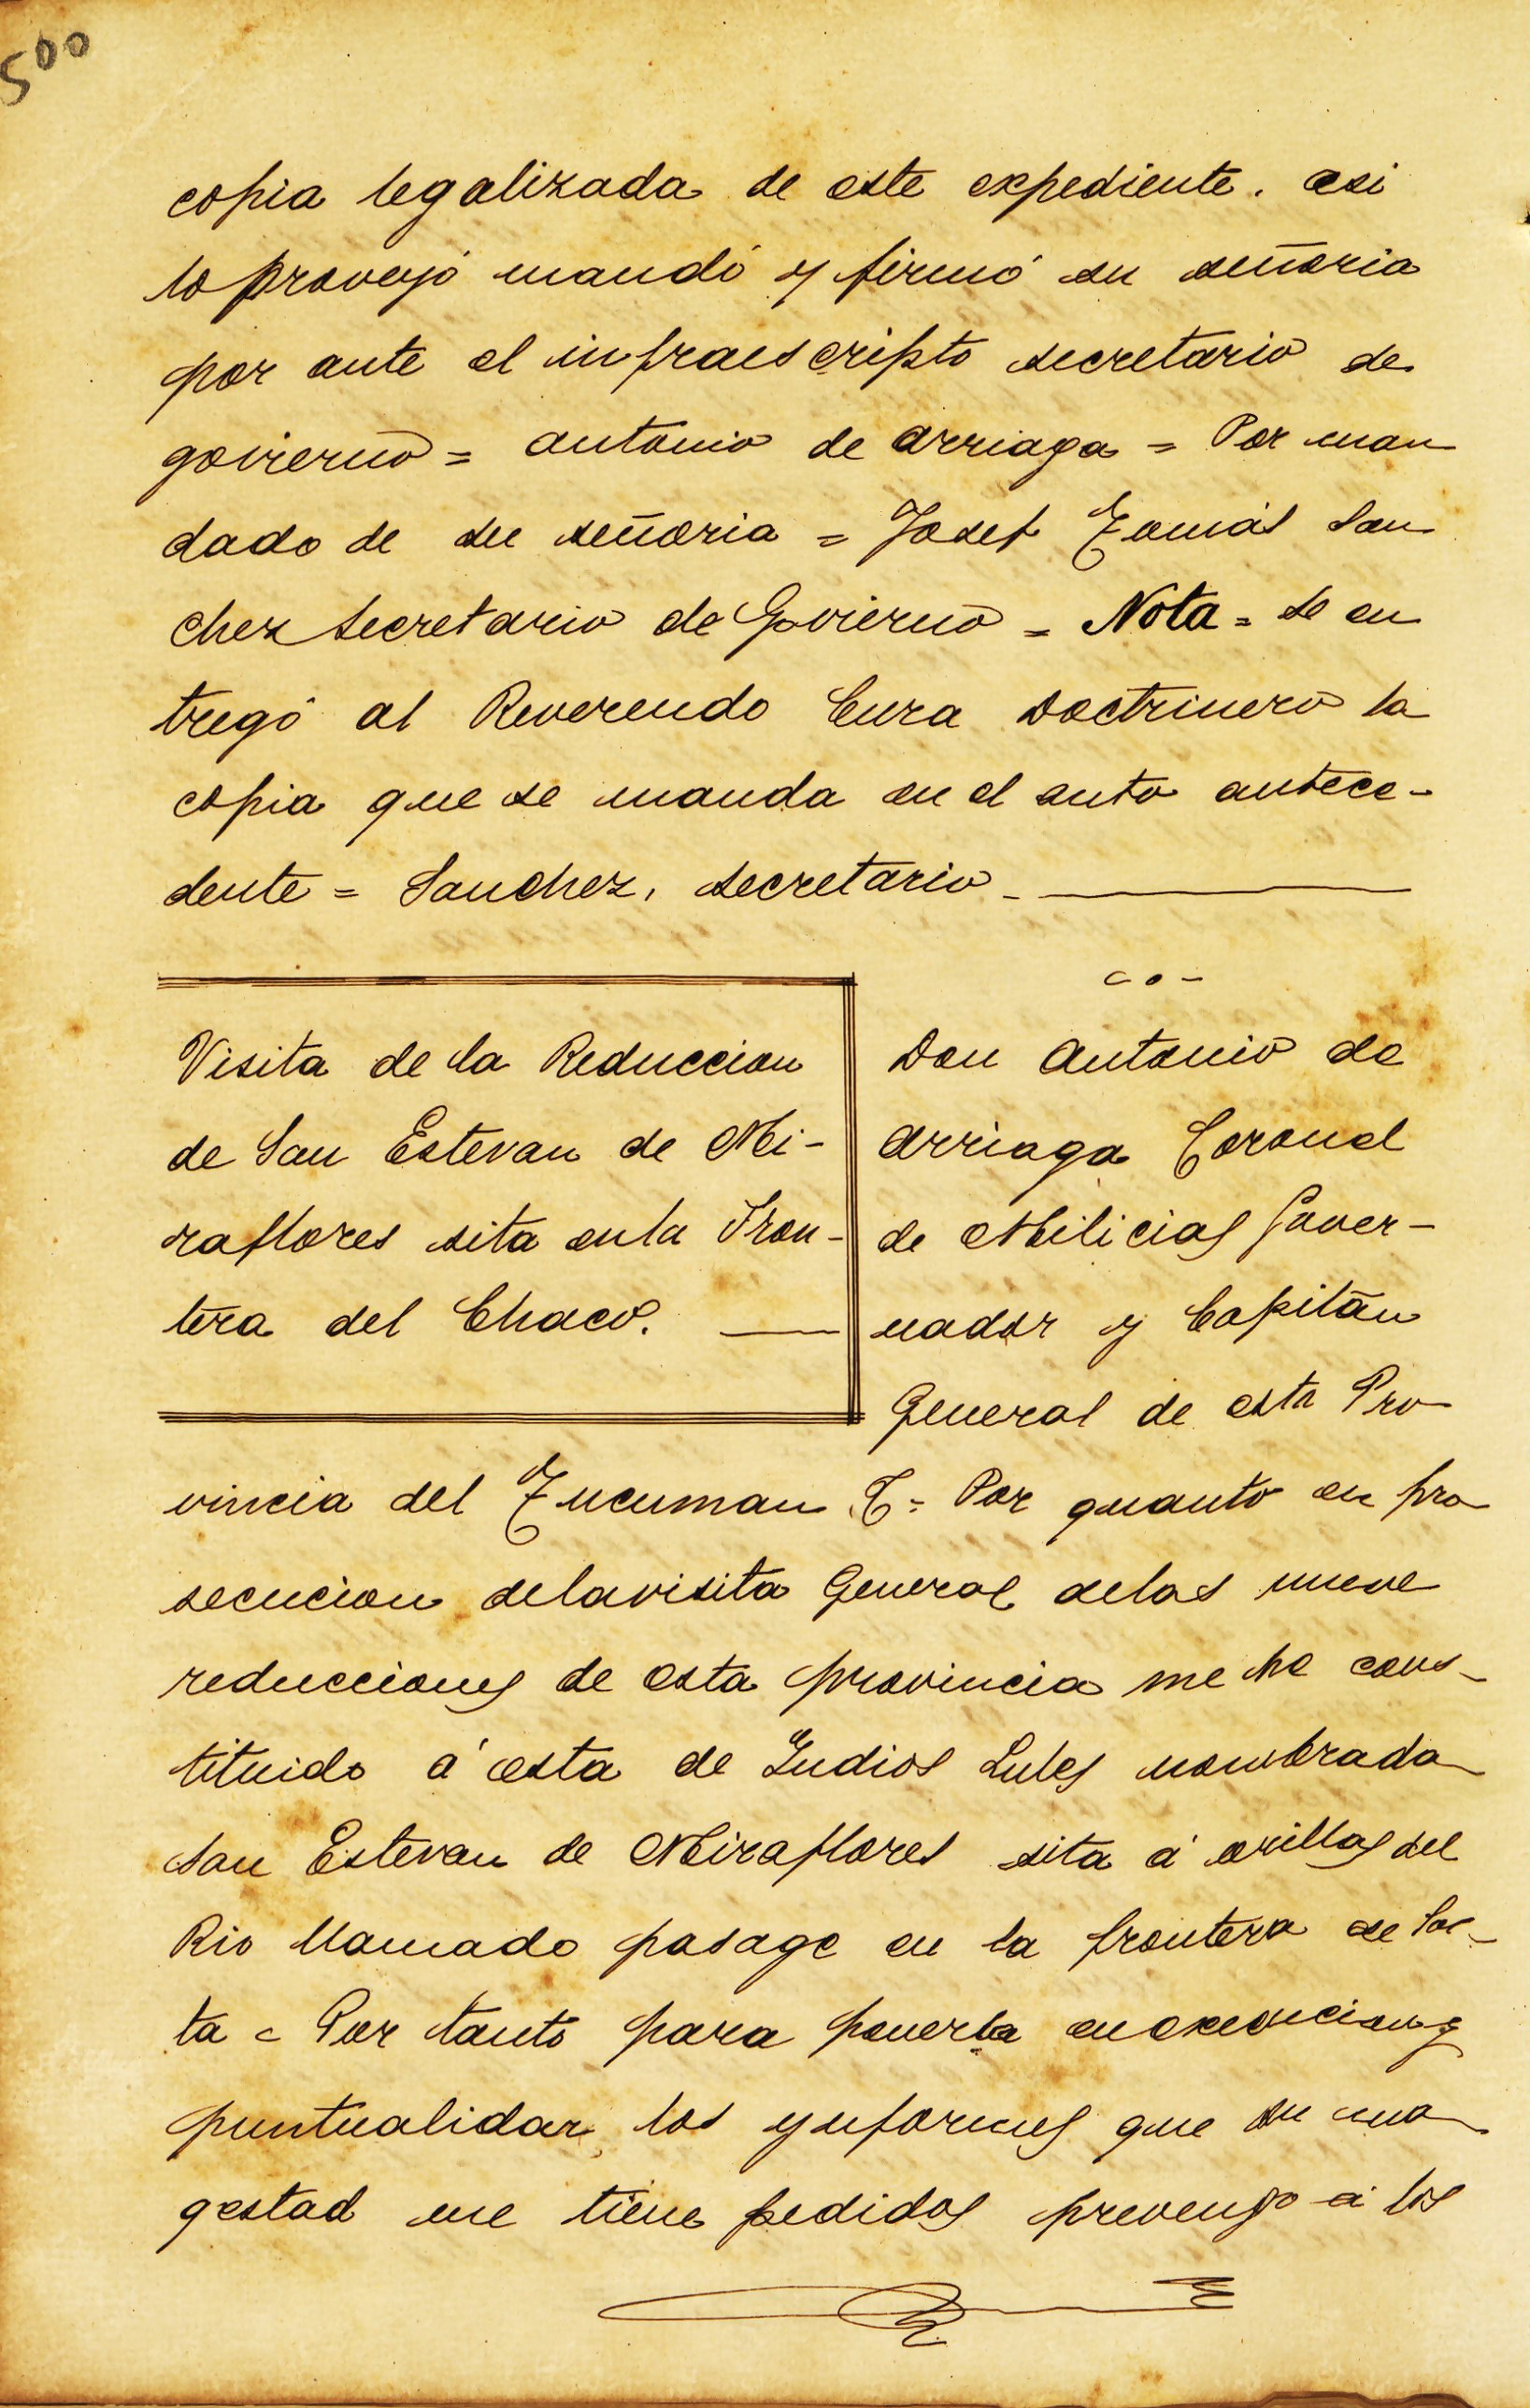 500
copia legalizada de este expediente. asi
lo proveyó mandó y firmó su señoria
por ante el infraescripto secretario de
govierno = antonio de arriaga = Por man
dado de su señoria = Josef Tomás San
chez Secretario de Govierno = Nota = se en
tregó al Reverendo Cura Doctrinero la
copia que se manda en el auto antece-
dente = Sanchez, secretario -
Visita de la Reduccion
de San Estevan de Mi-
raflores sita en la Fron-
tera del Chaco.
Don Antonio de
Arriaga Coronel
de Milicias Gover-
nador y Capitán
General de esta Pro
vincia del Tucuman = Por quanto en pro
secucion delavisita General delas nueve
reducciones de esta provincia me he cons-
tituido á esta de Indios Lules nombrada
San Estevan de Miraflores sita á orillas del
Rio llamado pasage en la frontera de Sal-
ta = Por tanto para ponerla en execucion y
puntualidar los ynformes que su ma
gestad me tiene pedidos prevengo á los